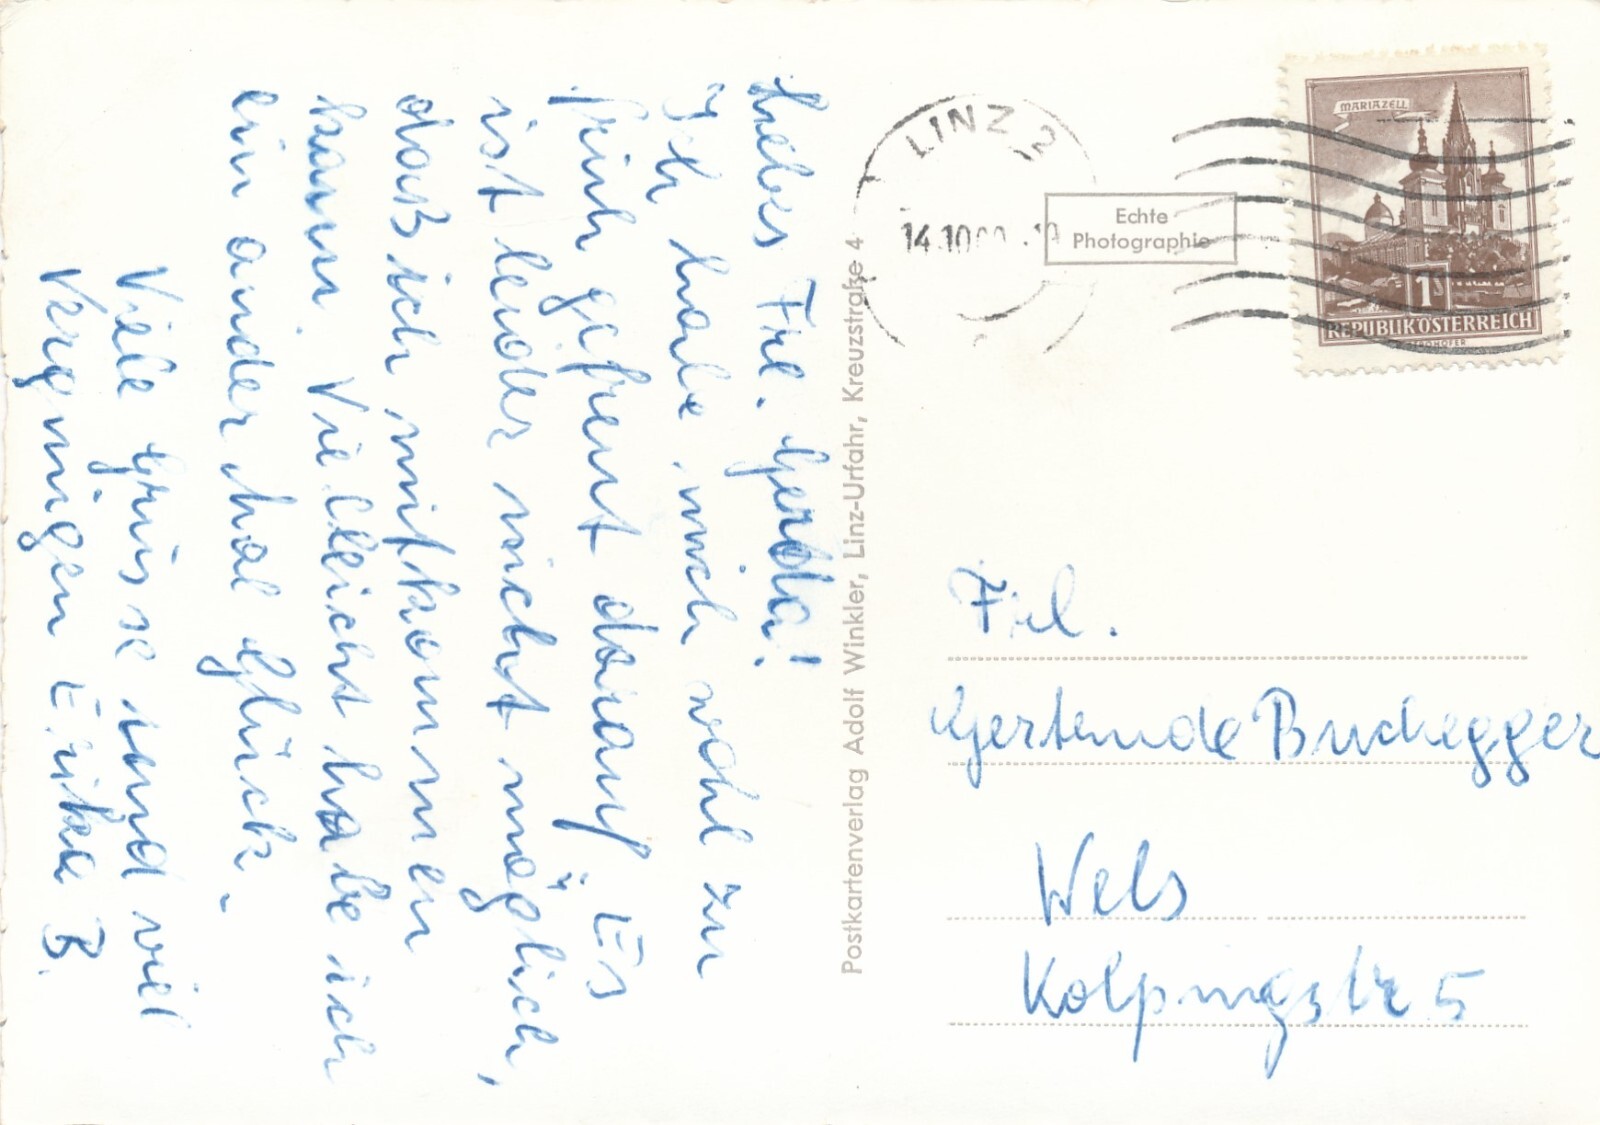 Liebes Frl. Gerda!
Ich habe mich wohl zu
früh gefreut darauf Es
ist leider nicht möglich,
daß ich mitkommen
kann. Vielleicht habe ich
ein ander Mal Glück.
Viele Grüsse und viel
Vergnügen Erika B.
Postkartenverlag Adolf Winkler, Linz-Urfahr, Kreuzstraße 4
LINZ 2
14.10
Echte
Photographie
MARIAZELL
1S
REPUBLIK ÖSTERREICH
Frl.
Gertrude Buchegger
Wels
Kolpingstr 5